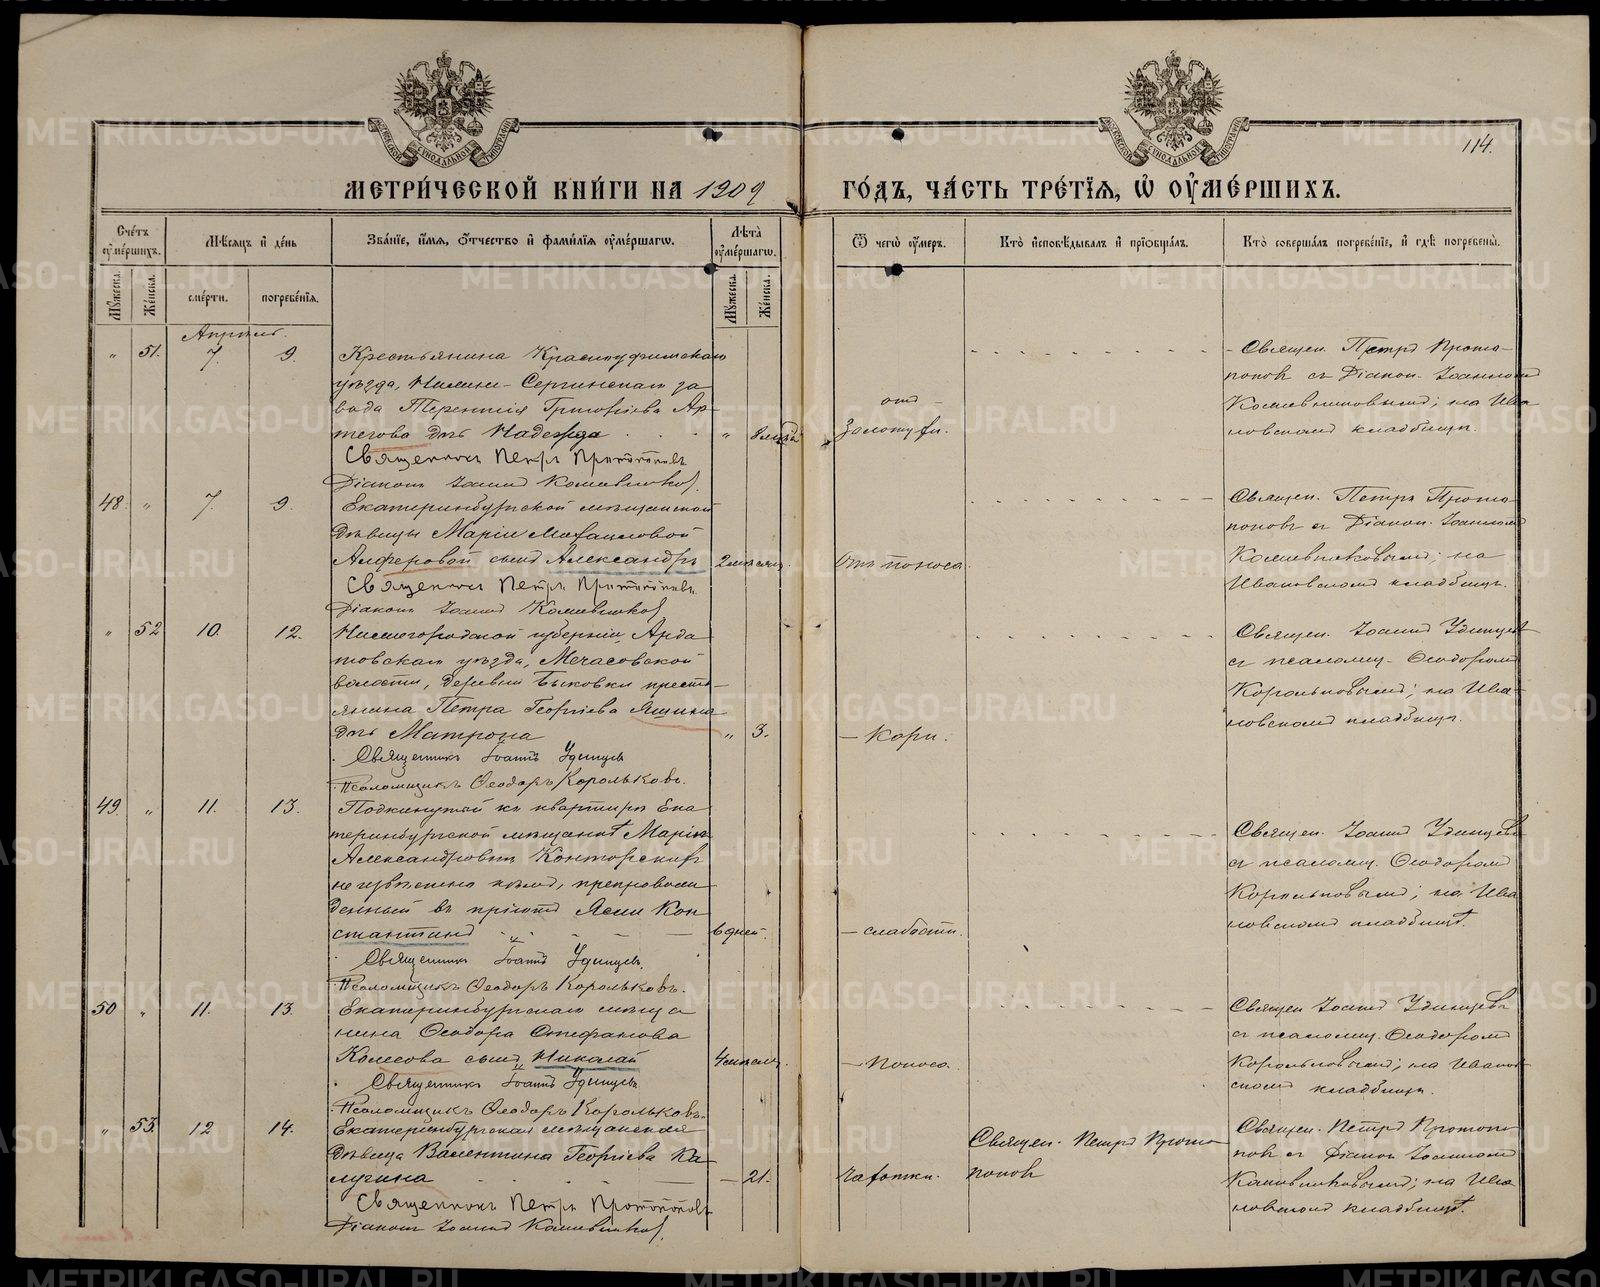 МОСКОВСКОЙ СѴНОДАЛЬНОЙ ТИПОГРАФІИ
МОСКОВСКОЙ СѴНОДАЛЬНОЙ ТИПОГРАФІИ
114.
МЕТРИ́ЧЕСКОЙ КНИ́ГИ НА 1909
ГО́ДЪ, ЧА́СТЬ ТРЕ́ТЇѦ, Ѡ҆ ОУ҆МЕ́РШИХЪ.
Сче́тъ оу҆ме́ршихъ.
Мѣ́сѧцъ и҆ де́нь
Зва́нїе, и҆́мѧ, ѻ҆́тчество и҆ фами́лїѧ оу҆ме́ршагѡ.
Лѣ́та оу҆ме́ршагѡ.
Ѿ чегѡ̀ оу҆́меръ.
Кто̀ и҆сповѣ́дывалъ и҆ прїѡбща́лъ.
Кто̀ соверша́лъ погребе́нїе, и҆ гдѣ̀ погребены̀.
Мꙋ́жеска.
Же́нска.
сме́рти.
погребе́нїѧ.
Мꙋ́жеска.
Же́нска.
Апрѣль.
" 51. 7. 9.
Крестьянина Красноуфимскаго
уѣзда, Нижне-Сергинскаго за
вода Терентія Григорьева Ар-
тегова дчь Надежда
Священникъ Петръ Протопоповъ
Діаконъ Іоаннъ Кожевниковъ.
"
отъ
золотухи.
Священ. Петръ Прото-
поповъ съ Діакон. Іоанномъ
Кожевниковымъ; на Ива
новскомъ кладбищѣ.
48. " 7. 9.
Екатеринбургской мѣщанской
дѣвицы Маріи Михаиловой
Алферовой сынъ Александръ
Священникъ Петръ Протопоповъ
Діаконъ Іоаннъ Кожевниковъ
2 мѣсяц.
Отъ поноса.
Священ. Петръ Прото-
поповъ съ Діакон. Іоанномъ
Кожевниковымъ; на
Ивановскомъ кладбищѣ.
" 52 10. 12.
Нижегородской губерніи, Арда
товскаго уѣзда, Мечасовской
волости, деревни Быковки кресть-
янина Петра Георгіева Яшина
дчь Матрона
Священникъ Іоаннъ Удинцевъ
Псаломщикъ Ѳеодоръ Корольковъ.
" 3.
– Кори.
Священ. Іоаннъ Удинцевъ
съ псаломщ. Ѳеодоромъ
Корольковымъ; на Ива-
новскомъ кладбищѣ.
49. " 11. 13.
Подкинутый къ квартирѣ Ека
теринбургской мѣщанкѣ Маріи
Александровнѣ Конторскихъ
неизвѣстно кѣмъ, препровож
денный въ пріютъ Ясли Кон
стантинъ
Священникъ Іоаннъ Удинцевъ.
Псаломщикъ Ѳеодоръ Корольковъ.
6 дней.
– слабости.
Священ. Іоаннъ Удинцевъ
съ псаломщ. Ѳеодоромъ
Корольковымъ; на Ива
новскомъ кладбищѣ.
50 " 11. 13.
Екатеринбургскаго мѣща
нина Ѳеодора Стефанова
Колесова сынъ Николай
Священникъ Іоаннъ Удинцевъ
Псаломщикъ Ѳеодоръ Корольковъ.
4 мѣсяц.
– Поноса.
Священ Іоаннъ Удинцевъ
съ псаломщ. Ѳеодоромъ
Корольковымъ; на Иванов
скомъ кладбищѣ.
" 53. 12 14.
Екатеринбургская мѣщанская
дѣвица Валентина Георгіева Ка
лугина
Священникъ Петръ Протопоповъ
Діаконъ Іоаннъ Кожевниковъ.
– 21.
Чахотки.
Священ. Петръ Прото
поповъ
Священ. Петръ Протопо
повъ съ Діакон Іоанномъ
Кожевниковымъ; на Ива
новскомъ кладбищѣ.
METRIKI.GASO-URAL.RU